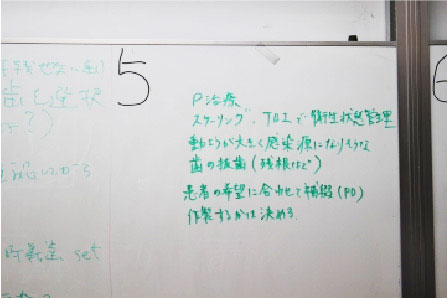 5
P治療
スケーリング、TBIで衛生状態管理
動ようが大きく感染源になりそうな
歯の抜歯(残根など)
患者の希望に合わせて補綴(PD)
作製するかは決める.
6
歯を選択
set